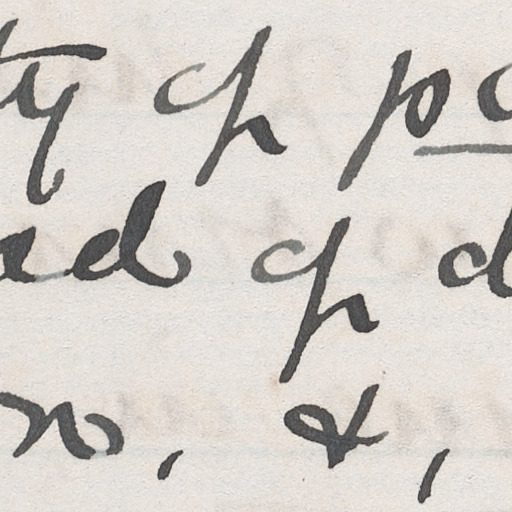 ty of po
ad of d
n, &,